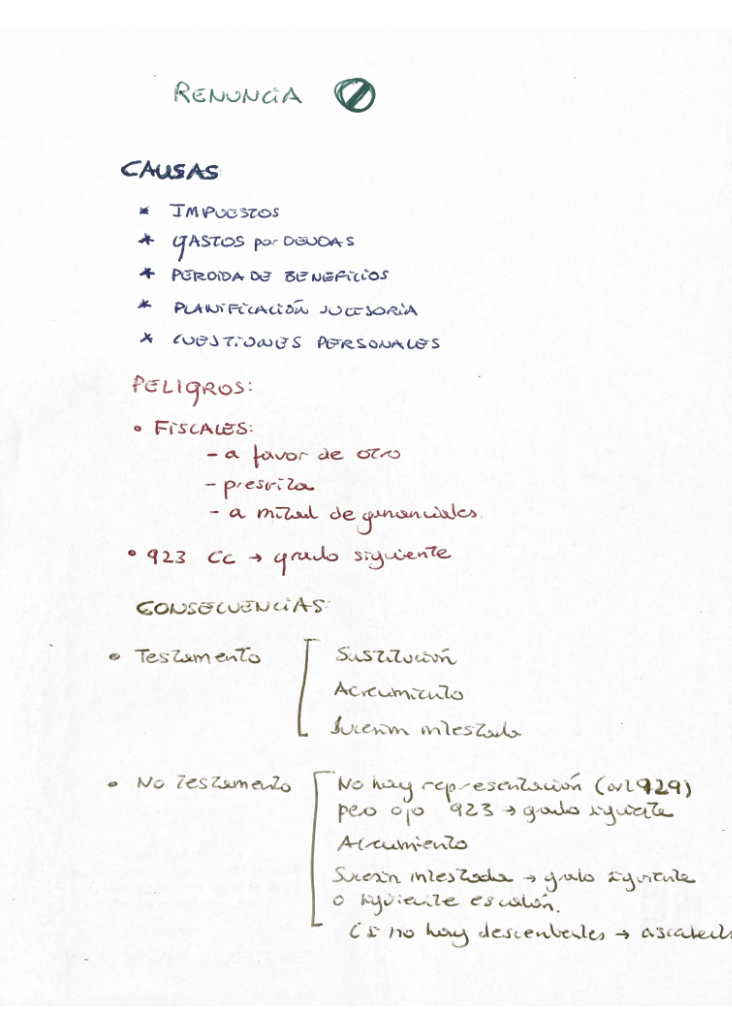 RENUNCIA
CAUSAS:
* IMPUESTOS
* GASTOS por DEUDAS
* PERDIDA DE BENEFICIOS
* PLANIFICACIÓN SUCESORIA
* CUESTIONES PERSONALES
PELIGROS:
• FISCALES:
- a favor de otro
- prescrita
- a mitad de gananciales.
• 923 CC → grado siguiente
CONSECUENCIAS:
• Testamento
Sustitución
Acrecimiento
Sucesión intestada
• No Testamento
No hay representación (art 929)
pero ojo 923 → grado siguiente
Acrecimiento
Sucesión intestada → grado siguiente
o siguiente escalón.
si no hay descendientes →